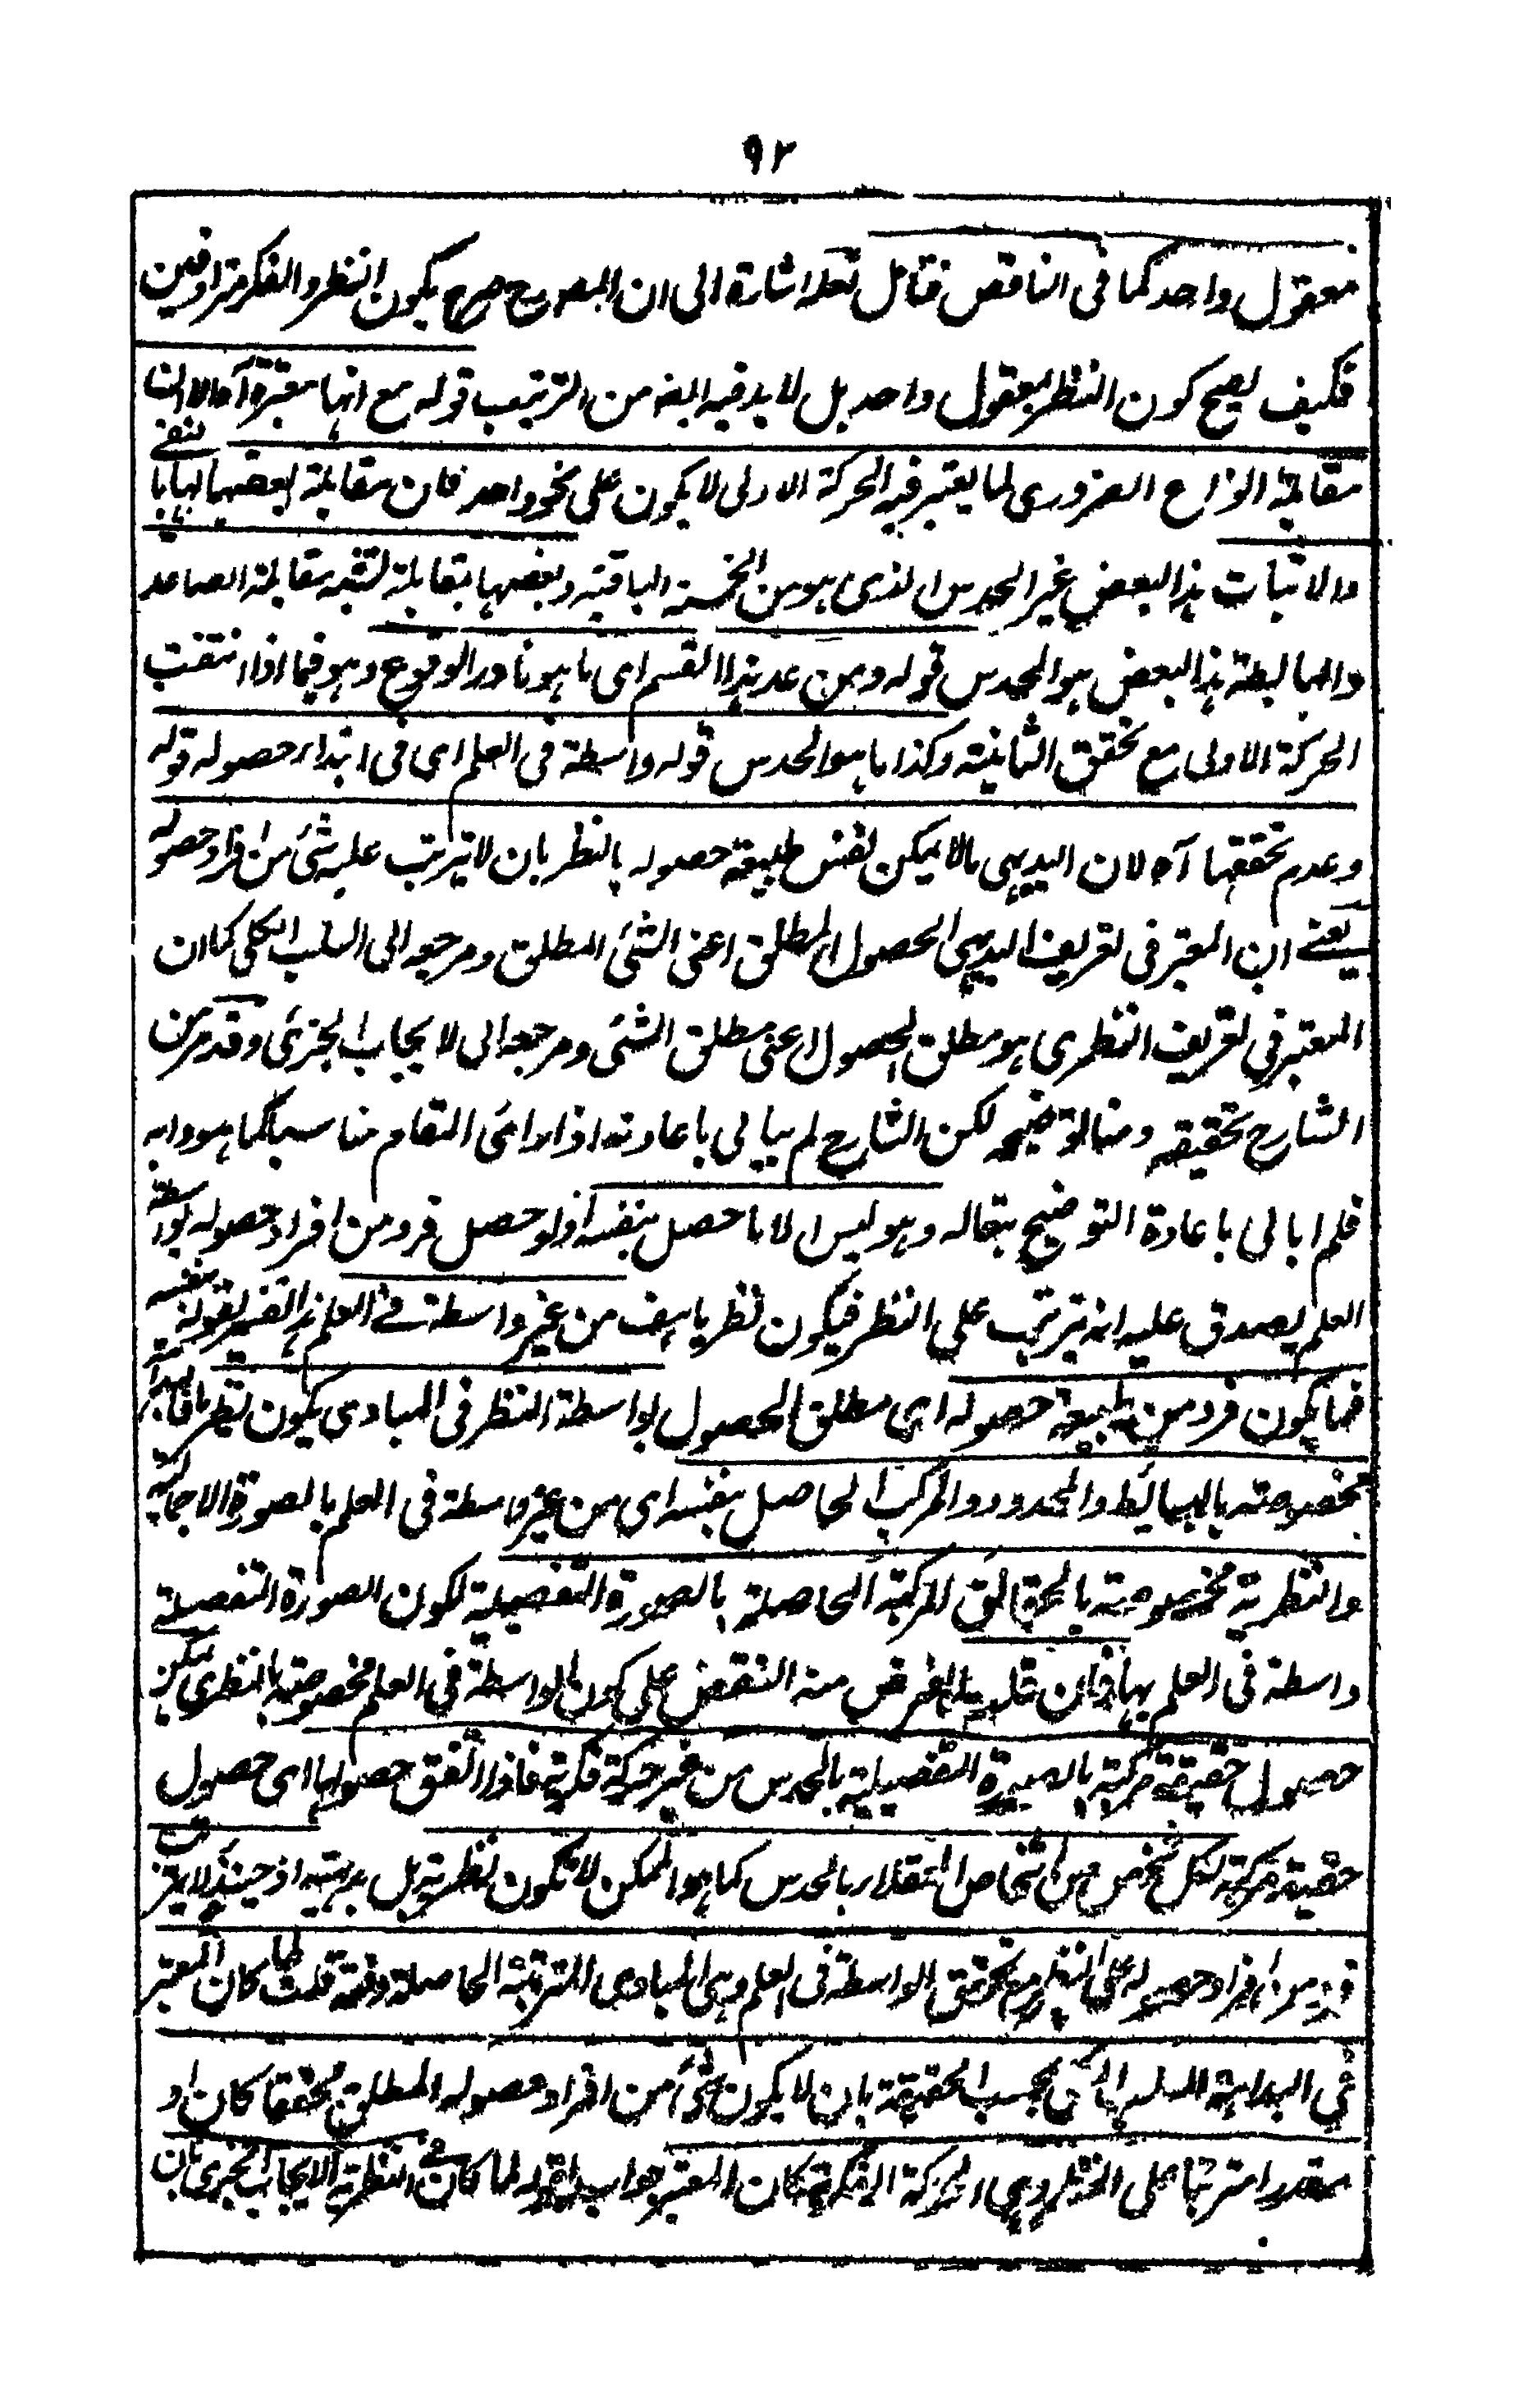 ٩٢
معقول واحد كما فى الناقص فتامل لعله اشارة الى ان المصرح صرح بكون النظر والفكر مترادفين
فكيف يصح كون النظر بمعقول واحد بل لا بد فيه البتة من الترتيب قوله مع انها معتبرة آه الا ان
مقابلة انواع الضرورى لما يعتبر فيه الحركة الاولى لا يكون على نحو واحد فان مقابلة بعضها لها بالنفى
والاثبات هذا البعض غير الحدس الذى هو من الخمسة الباقية وبعضها بمقابلة تشبه مقابلة الصاعد
والهابطة هذا البعض هو الحدس قوله ومن عد هذا القسم اى ما هو نادر الوقوع وهو فيما اذا انتفت
الحركة الاولى مع تحقق الثانية وكذا ما هو الحدس قوله واسطة فى العلم اى فى ابتداء حصوله قوله
وعدم تحققها آه لان البديهى ما لا يمكن لنفس طبيعة حصوله بالنظر بان لا يترتب عليه شئ من افراد حصوله
يعنے ان المعتبر فى تعريف البديهى الحصول المطلق اعنى الشئ المطلق ومرجعه الى السلب الكلى كما ان
المعتبر فى تعريف النظرى هو مطلق الحصول اعنى مطلق الشئ ومرجعه الى الايجاب الجزئى وقد مر من
الشارح تحقيقه ومنا توضيحه لكن الشارح لم يبالى باعادته اذا رائى المقام مناسبا كما هو دابه
فلم ابالى باعادة التوضيح بمقاله وهو ليس الا ما حصل بنفسه اذ لو حصل فرد من افراد حصوله بواسطة
العلم يصدق عليه انه يترتب على النظر فيكون نظريا هف من غير واسطة فے العلم هذا تفسير لقوله بنفسه
فما يكون فرد من طبيعة حصوله اى مطلق الحصول بواسطة النظر فى المبادى يكون نظريا فالبداهة
مخصوصة بالبسائط والمحدود والمركب الحاصل بنفسه اى من غير واسطة فى العلم بالصورة الاجمالية
والنظرية مخصوصة بالحقائق المركبة الحاصلة بالصورة التفصيلية لكون الصورة التفصيلة
واسطة فى العلم بها فان قلت الغرض منه النقض على كون الواسطة فى العلم مخصوصة بالنظرى يمكن
حصول حقيقة مركبة بالصورة التفصيلية بالحدس من غير حركة فكرية فاذا اتفق حصولها اى حصول
حقيقة مركبة لكل شخص من اشخاص العقلاء بالحدس كما هو الممكن لا تكون نظرية بل بديهية اذ حينئذ لا يترتب
فرد من افراد حصوله على النظر مع تحقق الواسطة فى العلم وهى المبادى المترتبة الحاصلة دفعة قلت لما كان المعتبر
فى البداهة السلب الكلى بحسب الحقيقة بان لا يكون شئ من افراد حصوله المطلق محققا كان او
مقدرا مترتبا على النظر وهى الحركة الفكرية كان المعتبر جواب لقوله لما كان فے النظرية الايجاب الجزئى بان